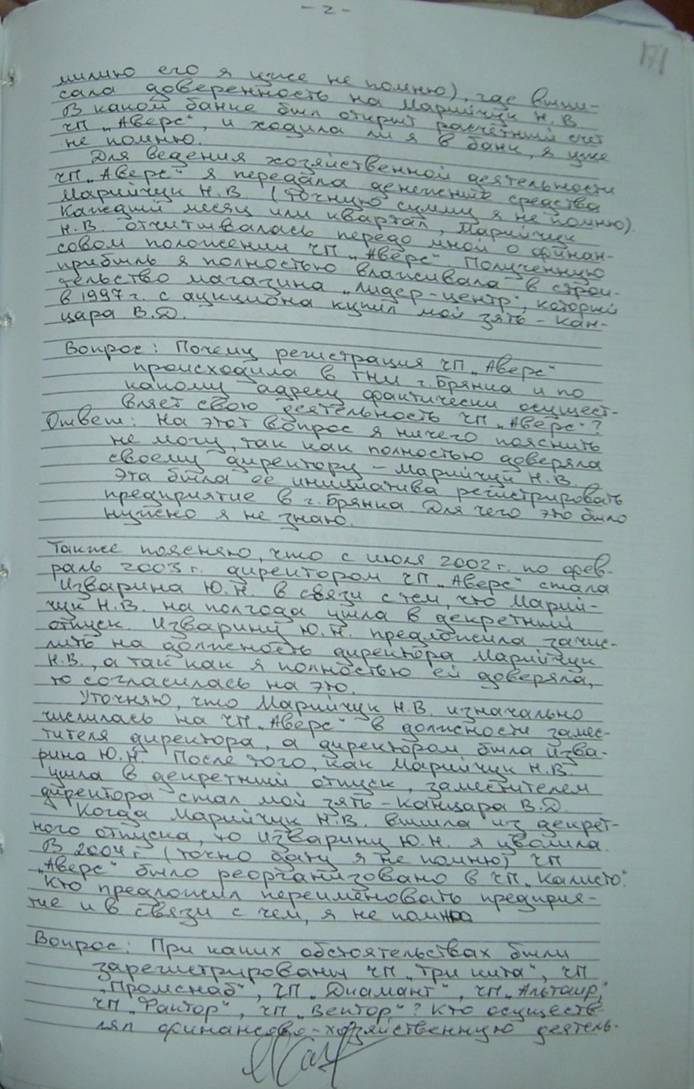 - 2 -
171
милию его я уже не помню), где выпи-
сала доверенность на Марийчук Н.В.
В каком банке был открыт расчётный счёт
ЧП „Аверс", и ходила ли я в банк, я уже
не помню.
Для ведения хозяйственной деятельности
ЧП „Аверс" я передала денежные средства
Марийчук Н.В. (точную сумму я не помню).
Каждый месяц или квартал, Марийчук
Н.В. отчитывалась передо мной о финан-
совом положении ЧП „Аверс". Полученную
прибыль я полностью вкладывала в строи-
тельство магазина „Лидер-центр", который
в 1997 г. с аукциона купил мой зять - Кан-
цара В.Д.
Вопрос: Почему регистрация ЧП „Аверс"
происходила в ГНИ г. Брянка и по
какому адресу фактически осущест-
вляет свою деятельность ЧП „Аверс"?
Ответ: На этот вопрос я ничего пояснить
не могу, так как полностью доверяла
своему директору - Марийчук Н.В.
Эта была её инициатива регистрировать
предприятие в г. Брянка. Для чего это было
нужно я не знаю.
Также поясняю, что с июля 2002 г. по фев-
раль 2003 г. директором ЧП „Аверс" стала
Изварина Ю.Н. в связи с тем, что Марий-
чук Н.В. на полгода ушла в декретный
отпуск. Изварину Ю.Н. предложила зачис-
лить на должность директора Марийчук
Н.В., а так как я полностью ей доверяла,
то согласилась на это.
Уточняю, что Марийчук Н.В. изначально
числилась на ЧП „Аверс" в должности замес-
тителя директора, а директором была Изва-
рина Ю.Н. После того, как Марийчук Н.В.
ушла в декретный отпуск, заместителем
директора стал мой зять - Канцара В.Д.
Когда Марийчук Н.В. вышла из декрет-
ного отпуска, то Изварину Ю.Н. я уволила.
В 2004 г. (точно дату я не помню) ЧП
„Аверс" было реорганизовано в ЧП „Калисто".
Кто предложил переименовать предприя-
тие и в связи с чем, я не помню
Вопрос: При каких обстоятельствах были
зарегистрированы ЧП „Три кита", ЧП
„Промснаб", ЧП „Диамант", ЧП „Альтаир",
ЧП „Фактор", ЧП „Вектор"? Кто осуществ-
лял финансово-хозяйственную деятель-